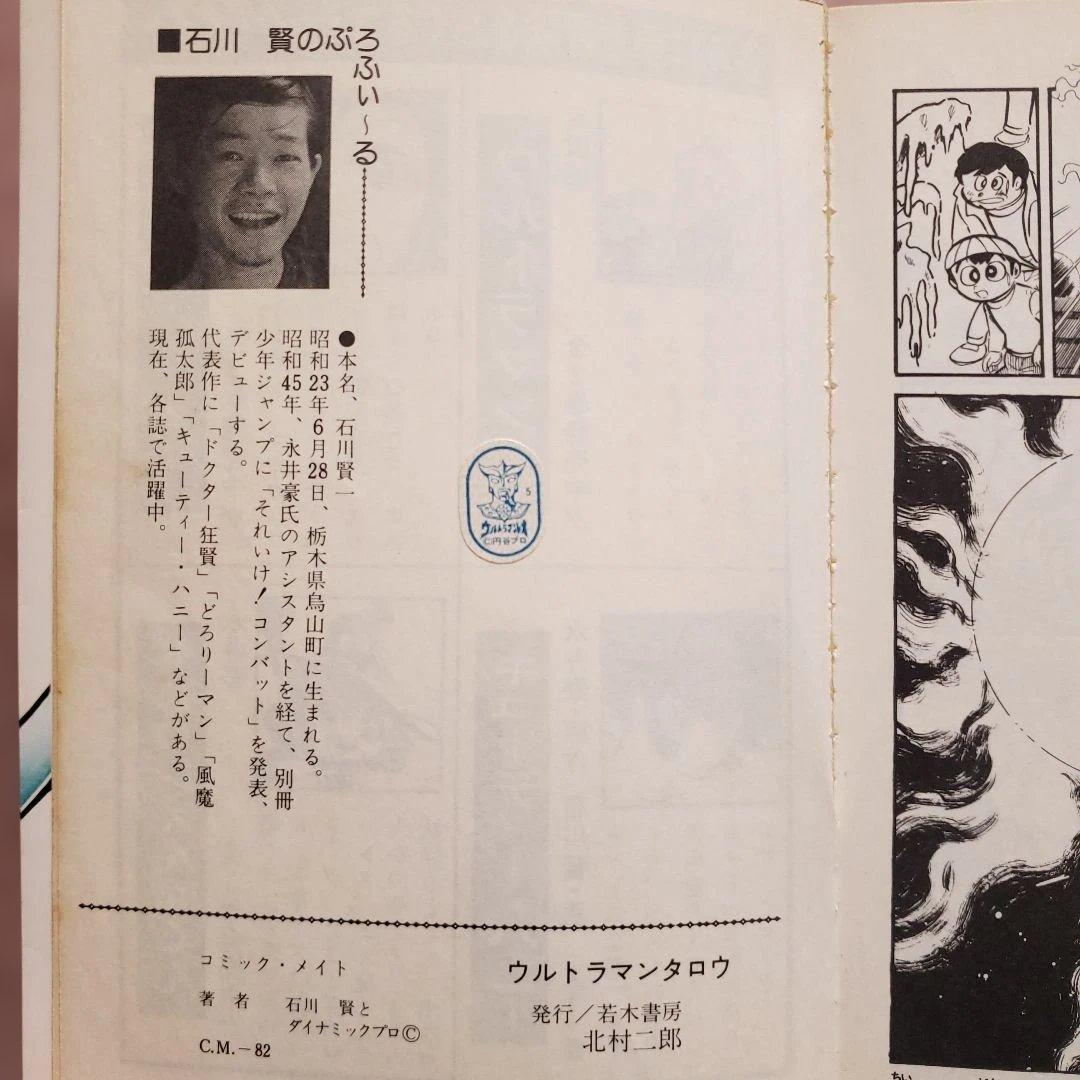 ■石川 賢のぷろふぃ~る
●本名、石川賢一
昭和23年6月28日、栃木県烏山町に生まれる。
昭和45年、永井豪氏のアシスタントを経て、別冊
少年ジャンプに「それいけ!コンバット」を発表、
デビューする。
代表作に「ドクター狂賢」「どろりーマン」「風魔
孤太郎」「キューティー・ハニー」などがある。
現在、各誌で活躍中。
5
ウルトラマンレオ
©円谷プロ
ウルトラマンタロウ
発行/若木書房
北村二郎
コミック・メイト
著者 石川 賢と
ダイナミックプロ©
C.M.-82